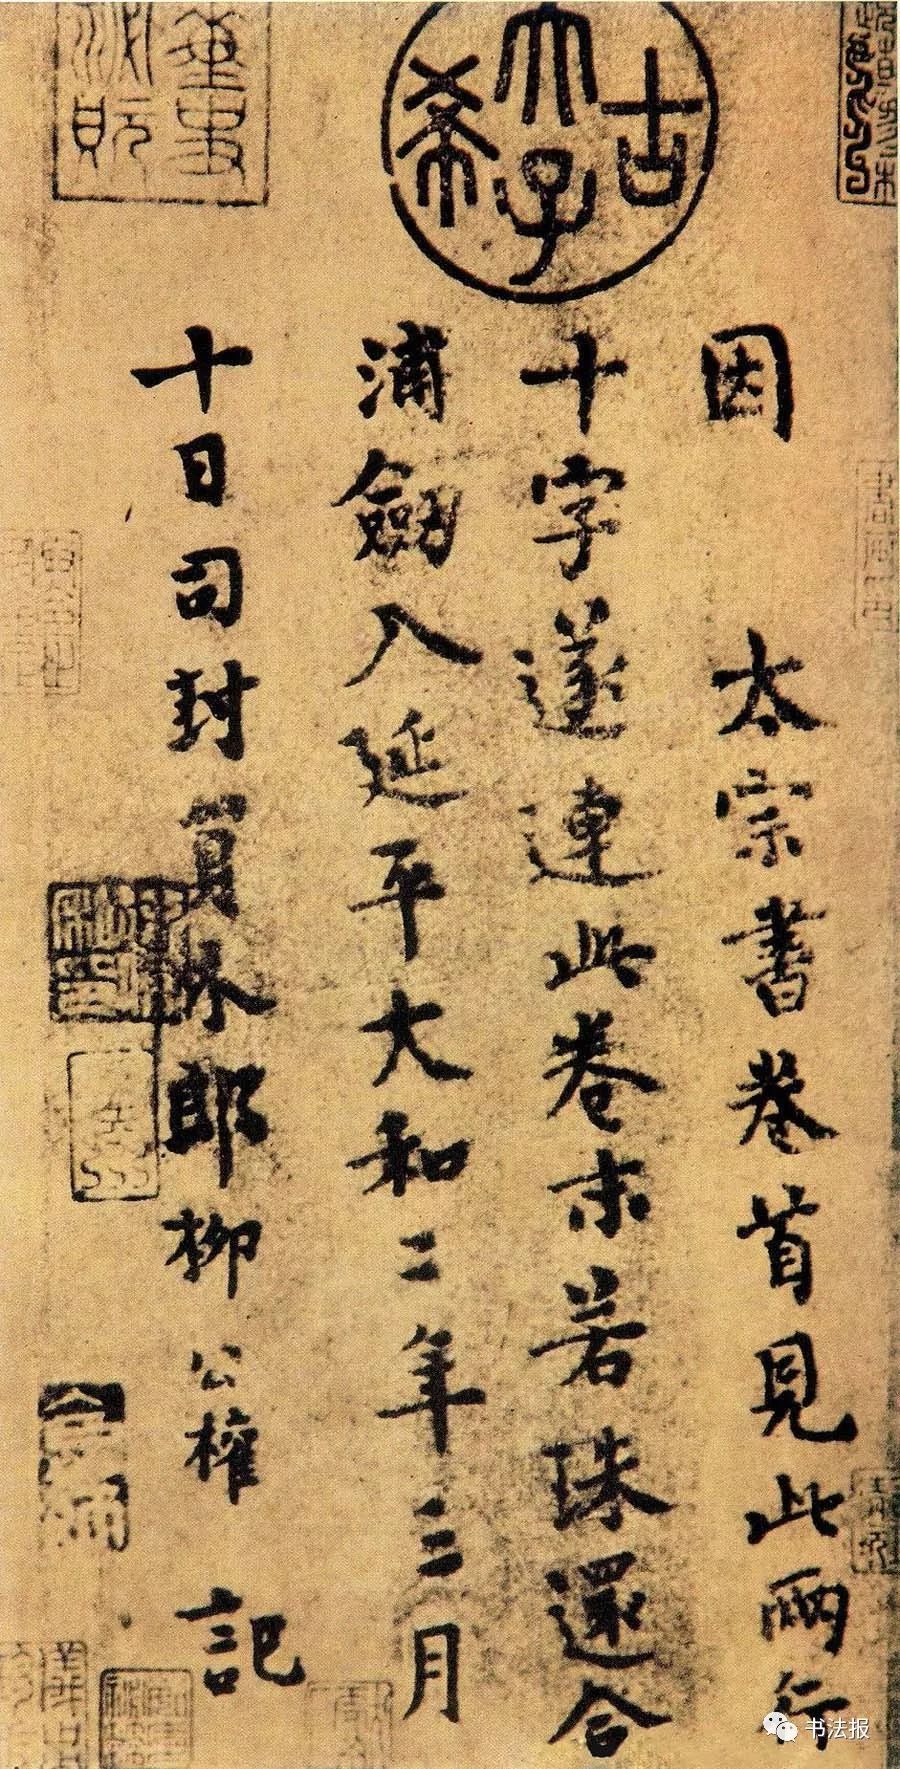 古希天子
因 太宗書卷首見此兩行
十字遂連此卷末若珠還合
浦劒入延平大和二年三月
十日司封員外郎柳公權 記
书法报